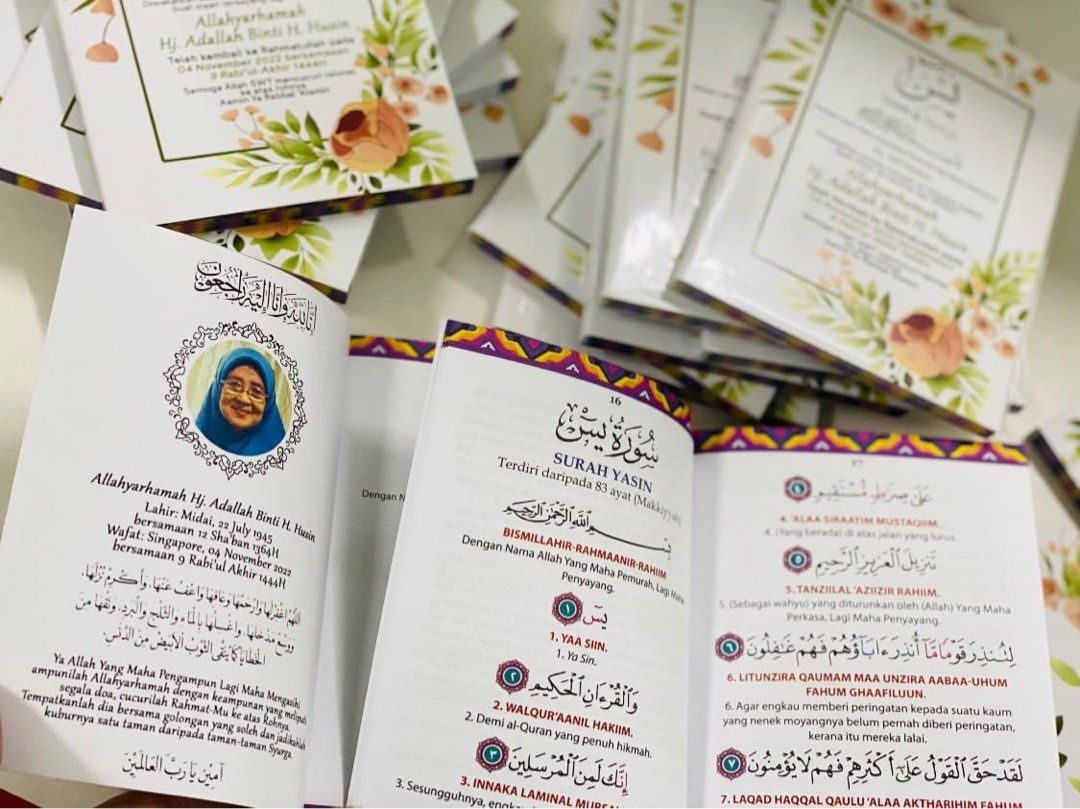 Allahyarhamah
Hj. Adallah Binti H. Husin
Telah kembali ke Rahmatullah pada
04 November 2022 bersamaan
9 Rabi'ul-Akhir
Semoga Allah SWT mencucuri rahmat
ke atas rohnya.
يس
Allahyarhamah
Hj. Adallah Binti H. Husin
إنا لله وإنا إليه راجعون
Allahyarhamah Hj. Adallah Binti H. Husin
Lahir: Midai, 22 July 1945
bersamaan 12 Sha'ban 1364H
Wafat: Singapore, 04 November 2022
bersamaan 9 Rabi'ul Akhir 1444H
اللهم اغفر لها وارحمها وعافها واعف عنها، وأكرم نزلها،
ووسع مدخلها، واغسلها بالماء والثلج والبرد، ونقها من
الخطايا كما ينقى الثوب الأبيض من الدنس.
Ya Allah Yang Maha Pengampun Lagi Maha Mengasihi
ampunilah Allahyarhamah dengan keampunan yang meliputi
segala doa, cucurilah Rahmat-Mu ke atas Rohnya.
Tempatkanlah dia bersama golongan yang soleh dan jadikanlah
kuburnya satu taman daripada taman-taman Syurga
آمين يا رب العالمين
Dengan
16
سُورَةُ يسٓ
SURAH YASIN
Terdiri daripada 83 ayat (Makkiyyah)
بسم الله الرحمن الرحيم
BISMILLAHIR-RAHMAANIR-RAHIIM
Dengan Nama Allah Yang Maha Pemurah, Lagi Maha
Penyayang.
يسٓ ١
1. YAA SIIN.
1. Ya Sin.
وَٱلْقُرْءَانِ ٱلْحَكِيمِ ٢
2. WALQUR'AANIL HAKIIM.
2. Demi al-Quran yang penuh hikmah.
إِنَّكَ لَمِنَ ٱلْمُرْسَلِينَ ٣
3. INNAKA LAMINAL
3. Sesungguhnya,
17
عَلَىٰ صِرَٰطٍ مُّسْتَقِيمٍ ٤
4. 'ALAA SIRAATIM MUSTAQIIM.
4. (Yang berada) di atas jalan yang lurus.
تَنزِيلَ ٱلْعَزِيزِ ٱلرَّحِيمِ ٥
5. TANZIILAL 'AZIIZIR RAHIIM.
5. (Sebagai wahyu) yang diturunkan oleh (Allah) Yang Maha
Perkasa, Lagi Maha Penyayang.
لِتُنذِرَ قَوْمًا مَّآ أُنذِرَ ءَابَآؤُهُمْ فَهُمْ غَٰفِلُونَ ٦
6. LITUNZIRA QAUMAM MAA UNZIRA AABAA-UHUM
FAHUM GHAAFILUUN.
6. Agar engkau memberi peringatan kepada suatu kaum
yang nenek moyangnya belum pernah diberi peringatan,
kerana itu mereka lalai.
لَقَدْ حَقَّ ٱلْقَوْلُ عَلَىٰٓ أَكْثَرِهِمْ فَهُمْ لَا يُؤْمِنُونَ ٧
7. LAQAD HAQQAL QAULU 'ALAA AKTHARIHIM FAHUM